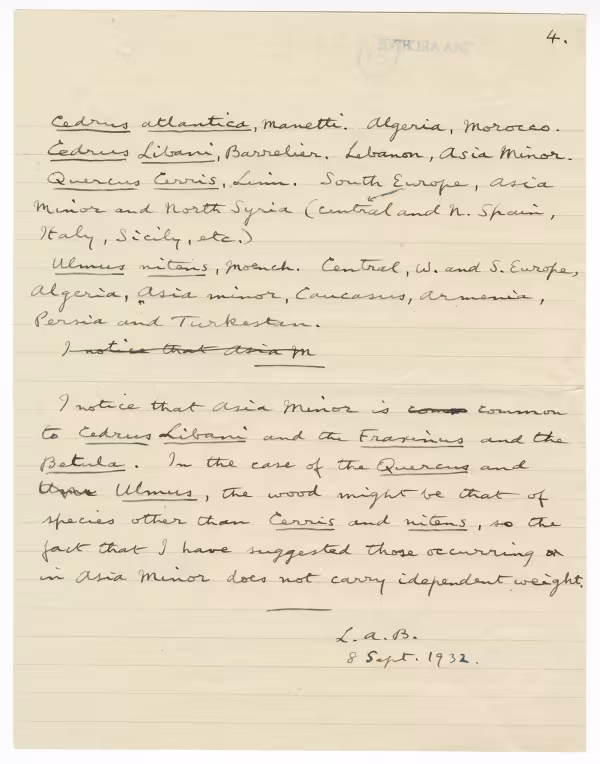 4.
Cedrus atlantica, Manetti. Algeria, Morocco.
Cedrus Libani, Barrelier. Lebanon, Asia Minor.
Quercus Cerris, Linn. South Europe, Asia
Minor and North Syria (central and N. Spain,
Italy, Sicily, etc.)
Ulmus nitens, Moench. Central, W. and S. Europe,
Algeria, Asia minor, Caucasus, Armenia,
Persia and Turkestan.
I notice that Asia M
I notice that Asia Minor is com common
to Cedrus Libani and the Fraxinus and the
Betula. In the case of the Quercus and
Ulmus, the wood might be that of
species other than Cerris and nitens, so the
fact that I have suggested those occurring
in Asia Minor does not carry idependent weight.
L.A.B.
8 Sept. 1932.